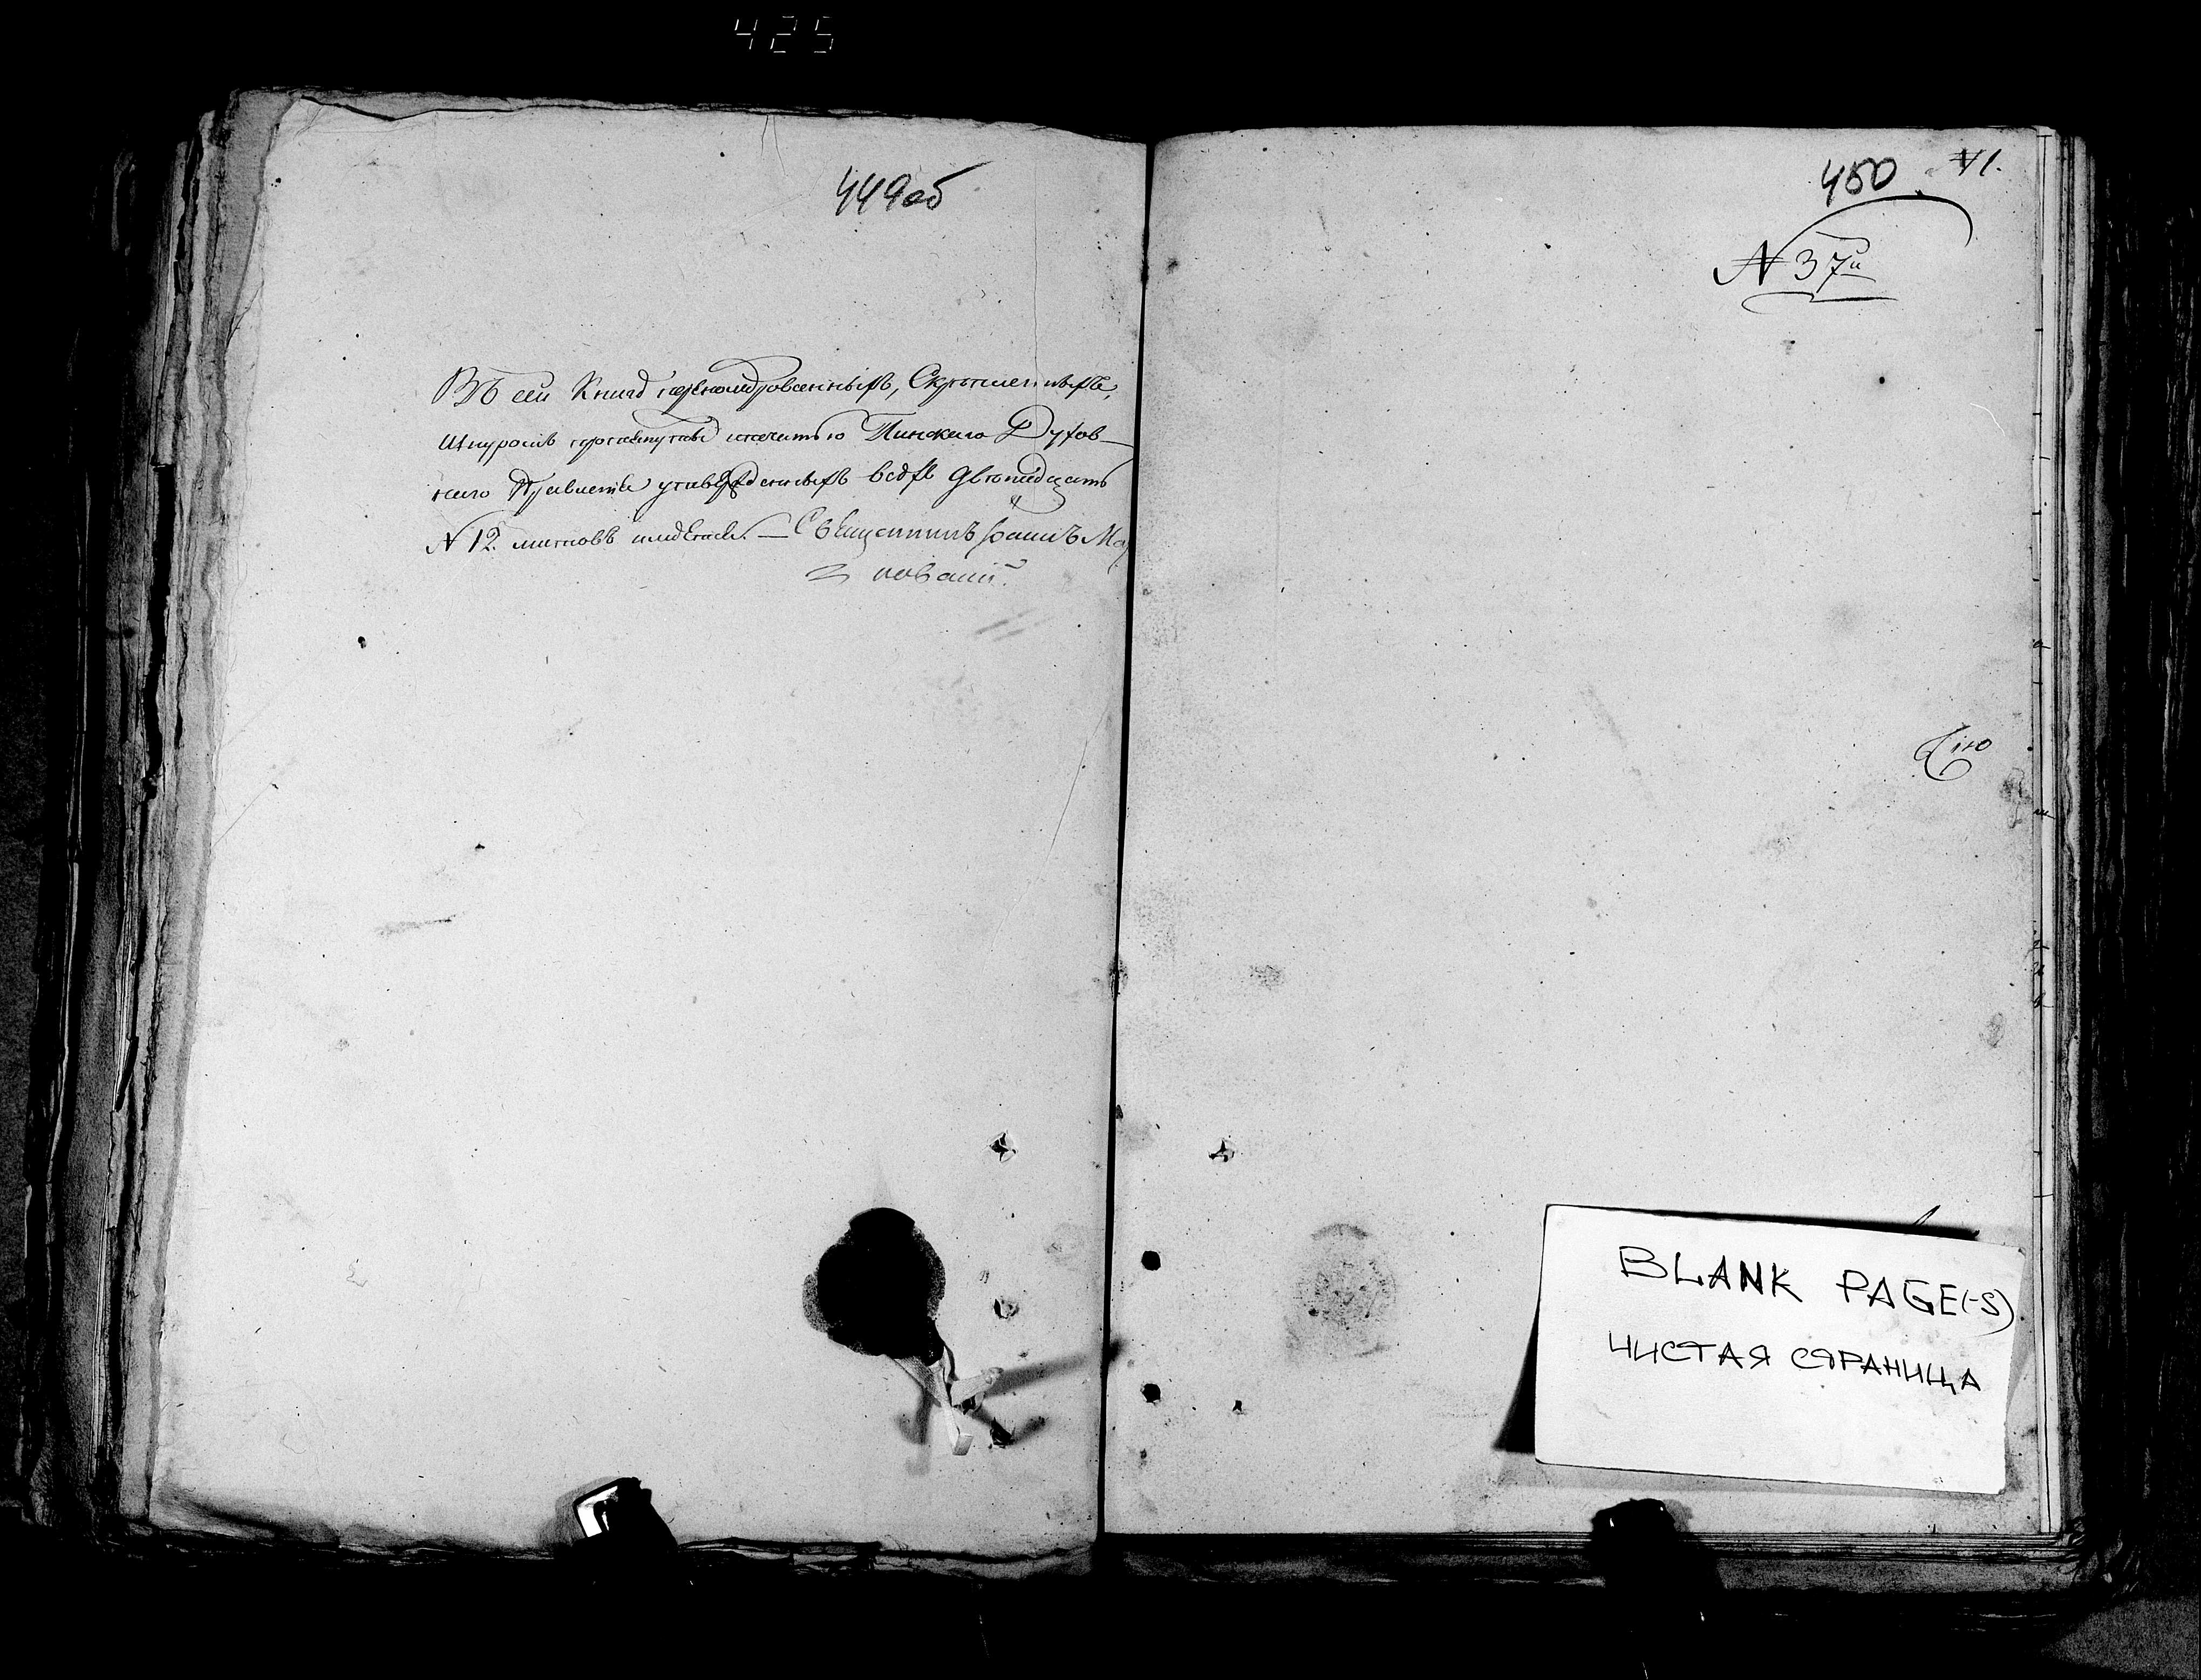 425
449об
Въ сей Книгѣ перенумерованныхъ, Скрѣпленныхъ,
Шнуромъ протянутыхъ и печатью Пинского Духов-
наго Правленія утвержденныхъ всѣхъ двенадцать
№ 12. листовъ имѣется. — Священникъ Іоаннъ
450 VI.
№ 37й
BLANK PAGE(-S)
ЧИСТАЯ СТРАНИЦА